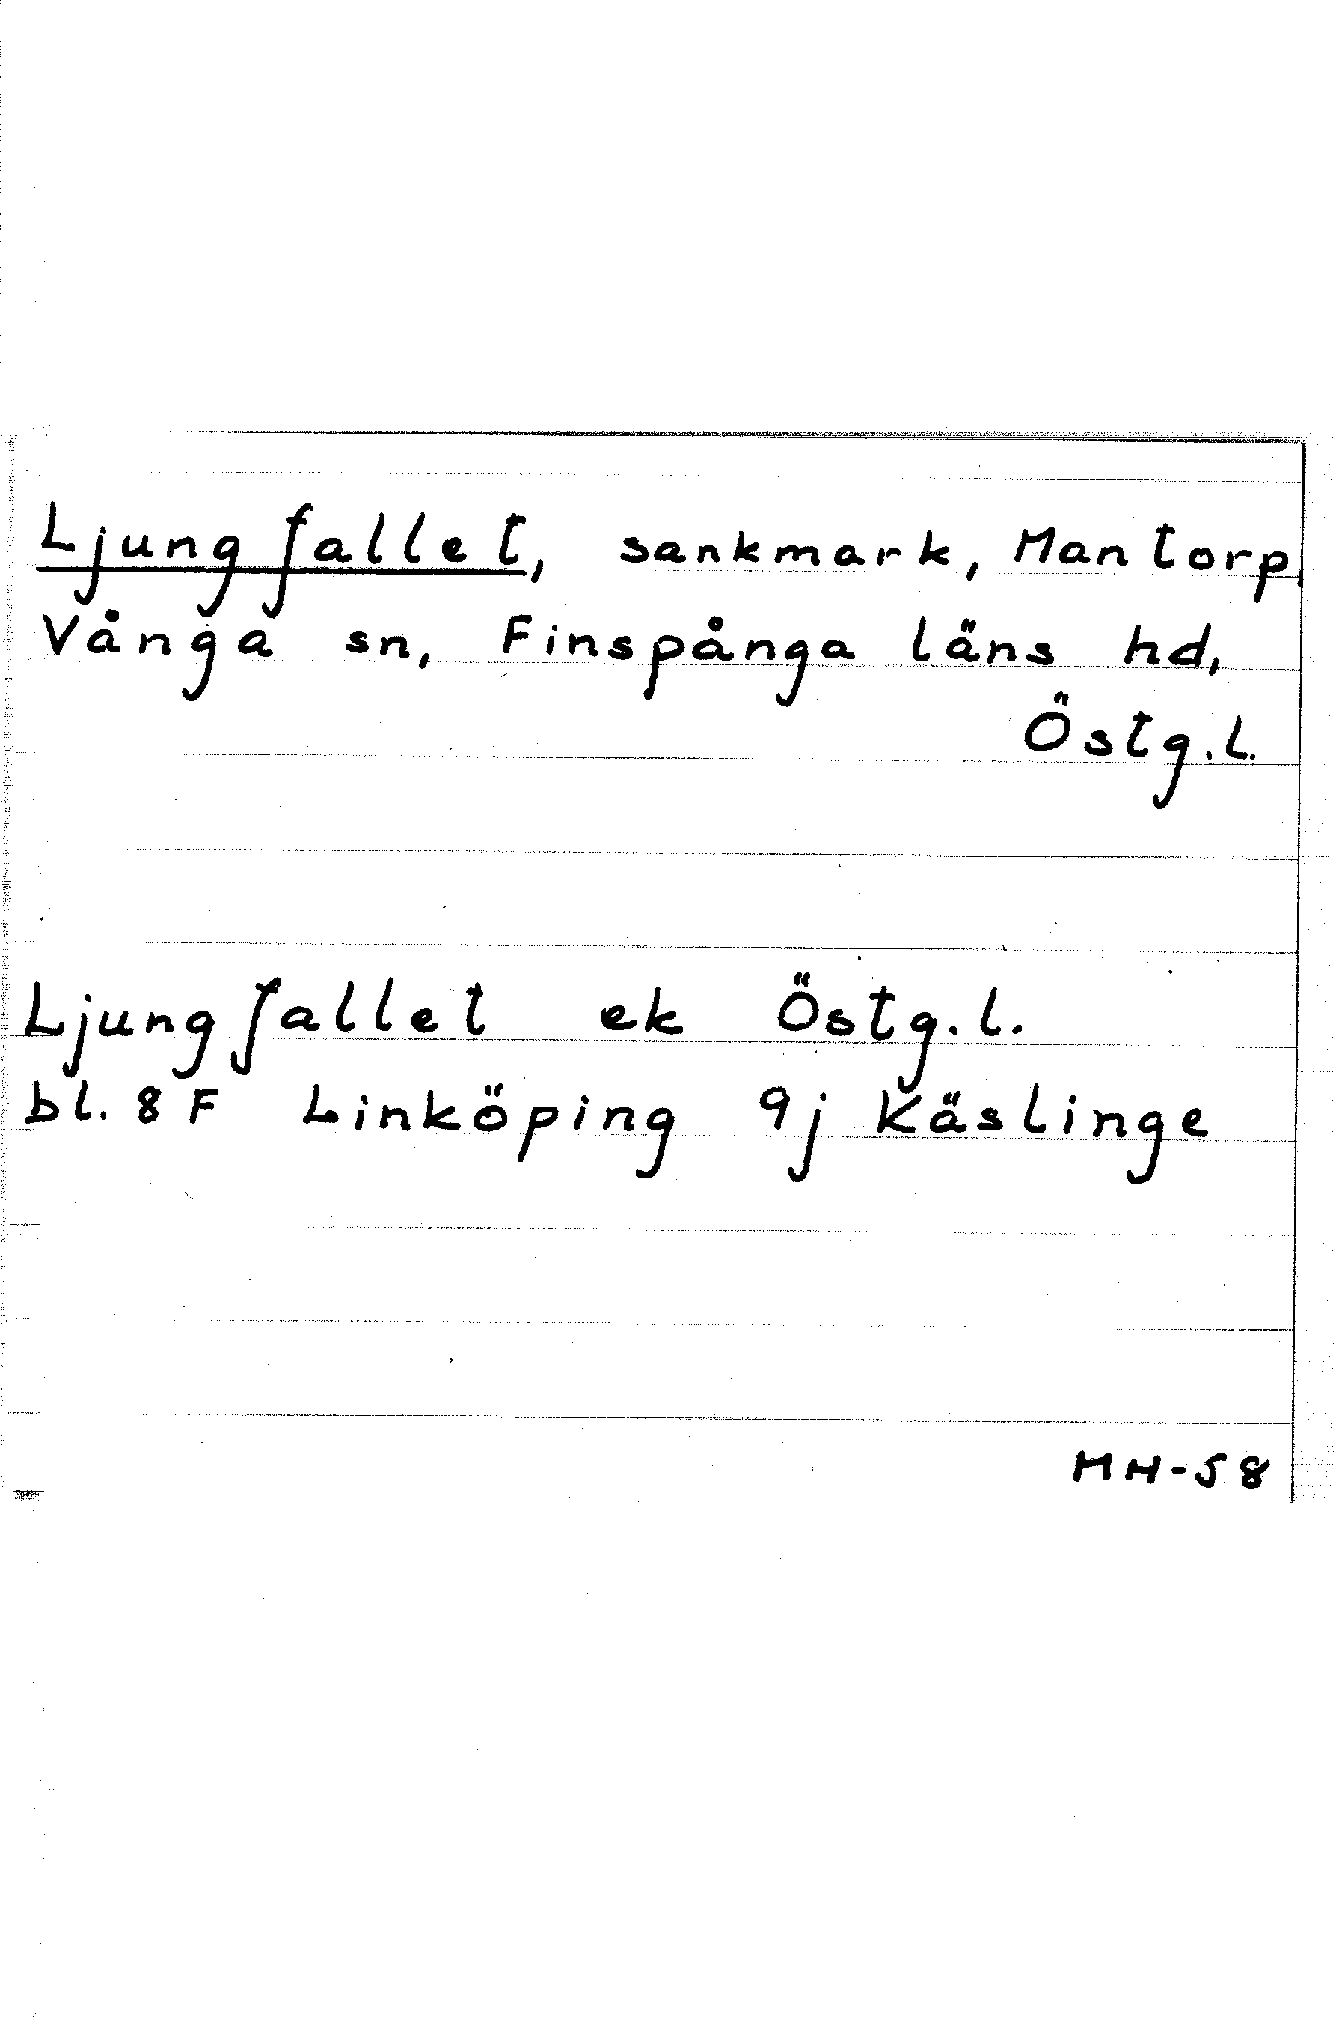 Ljungfallet, sankmark, Mantorp,
Vånga sn, Finspånga läns hd,
Östg.l.
Ljungfallet ek Östg.l.
bl. 8 F Linköping 9j Käslinge
MH-58